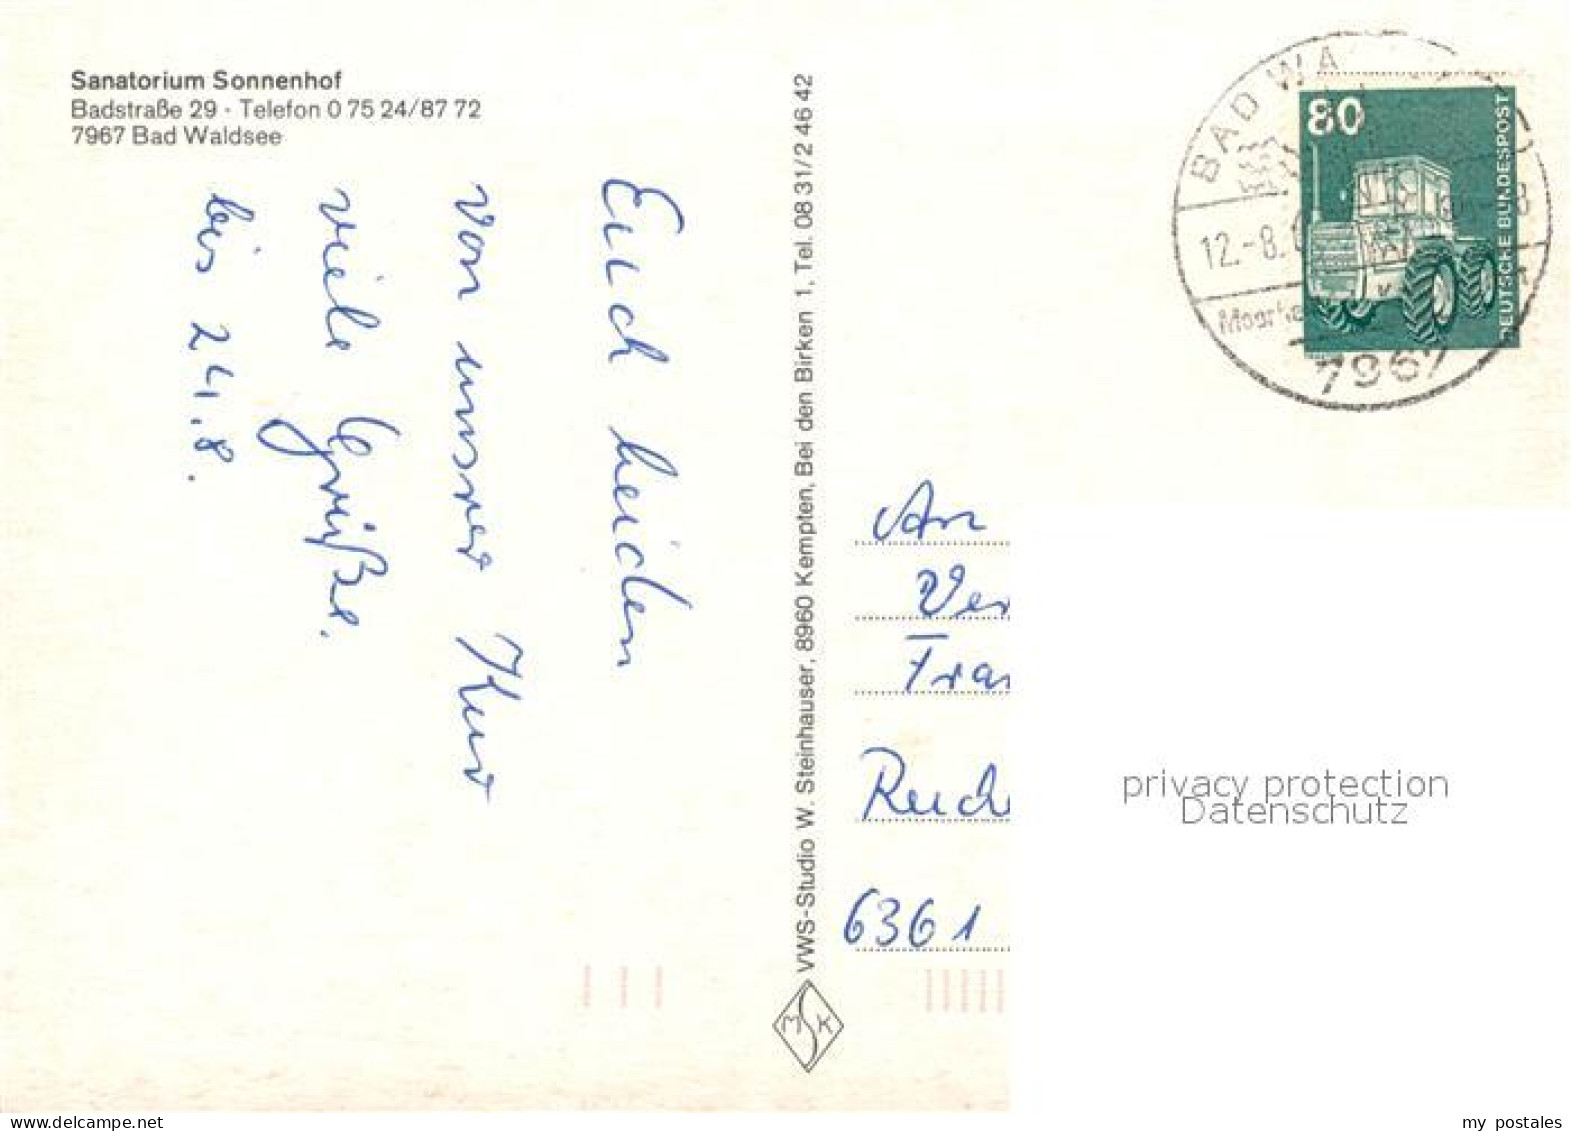 Sanatorium Sonnenhof
Badstraße 29 · Telefon 0 75 24/87 72
7967 Bad Waldsee
Euch beiden
von unsrer Kur
viele Grüße.
bis 24.8.
VWS-Studio W. Steinhauser, 8960 Kempten, Bei den Birken 1, Tel. 08 31/2 46 42
MSK
BAD WA
12.-8.
7967
80
DEUTSCHE BUNDESPOST
An
6361
privacy protection
Datenschutz
delcampe.net
my_postales